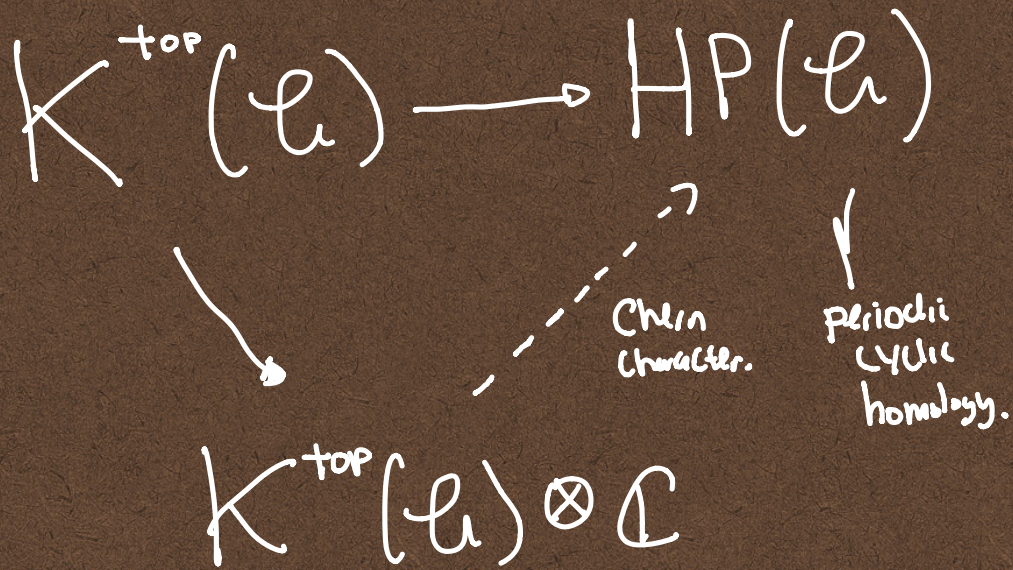 K^top(𝒞) → HP(𝒞)
Chern
character.
periodic
cyclic
homology.
K^top(𝒞) ⊗ ℂ